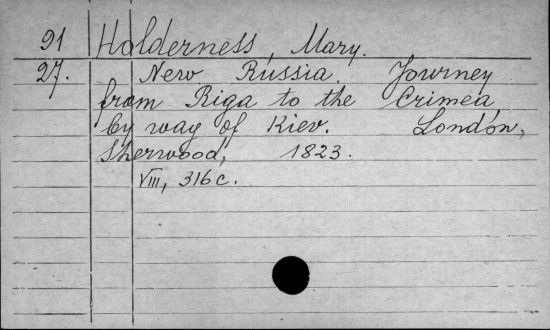 91 Holderness, Mary.
27. New Russia. Journey
from Riga to the Crimea
by way of Kiev. London,
Sherwood, 1823.
VIII, 316 c.